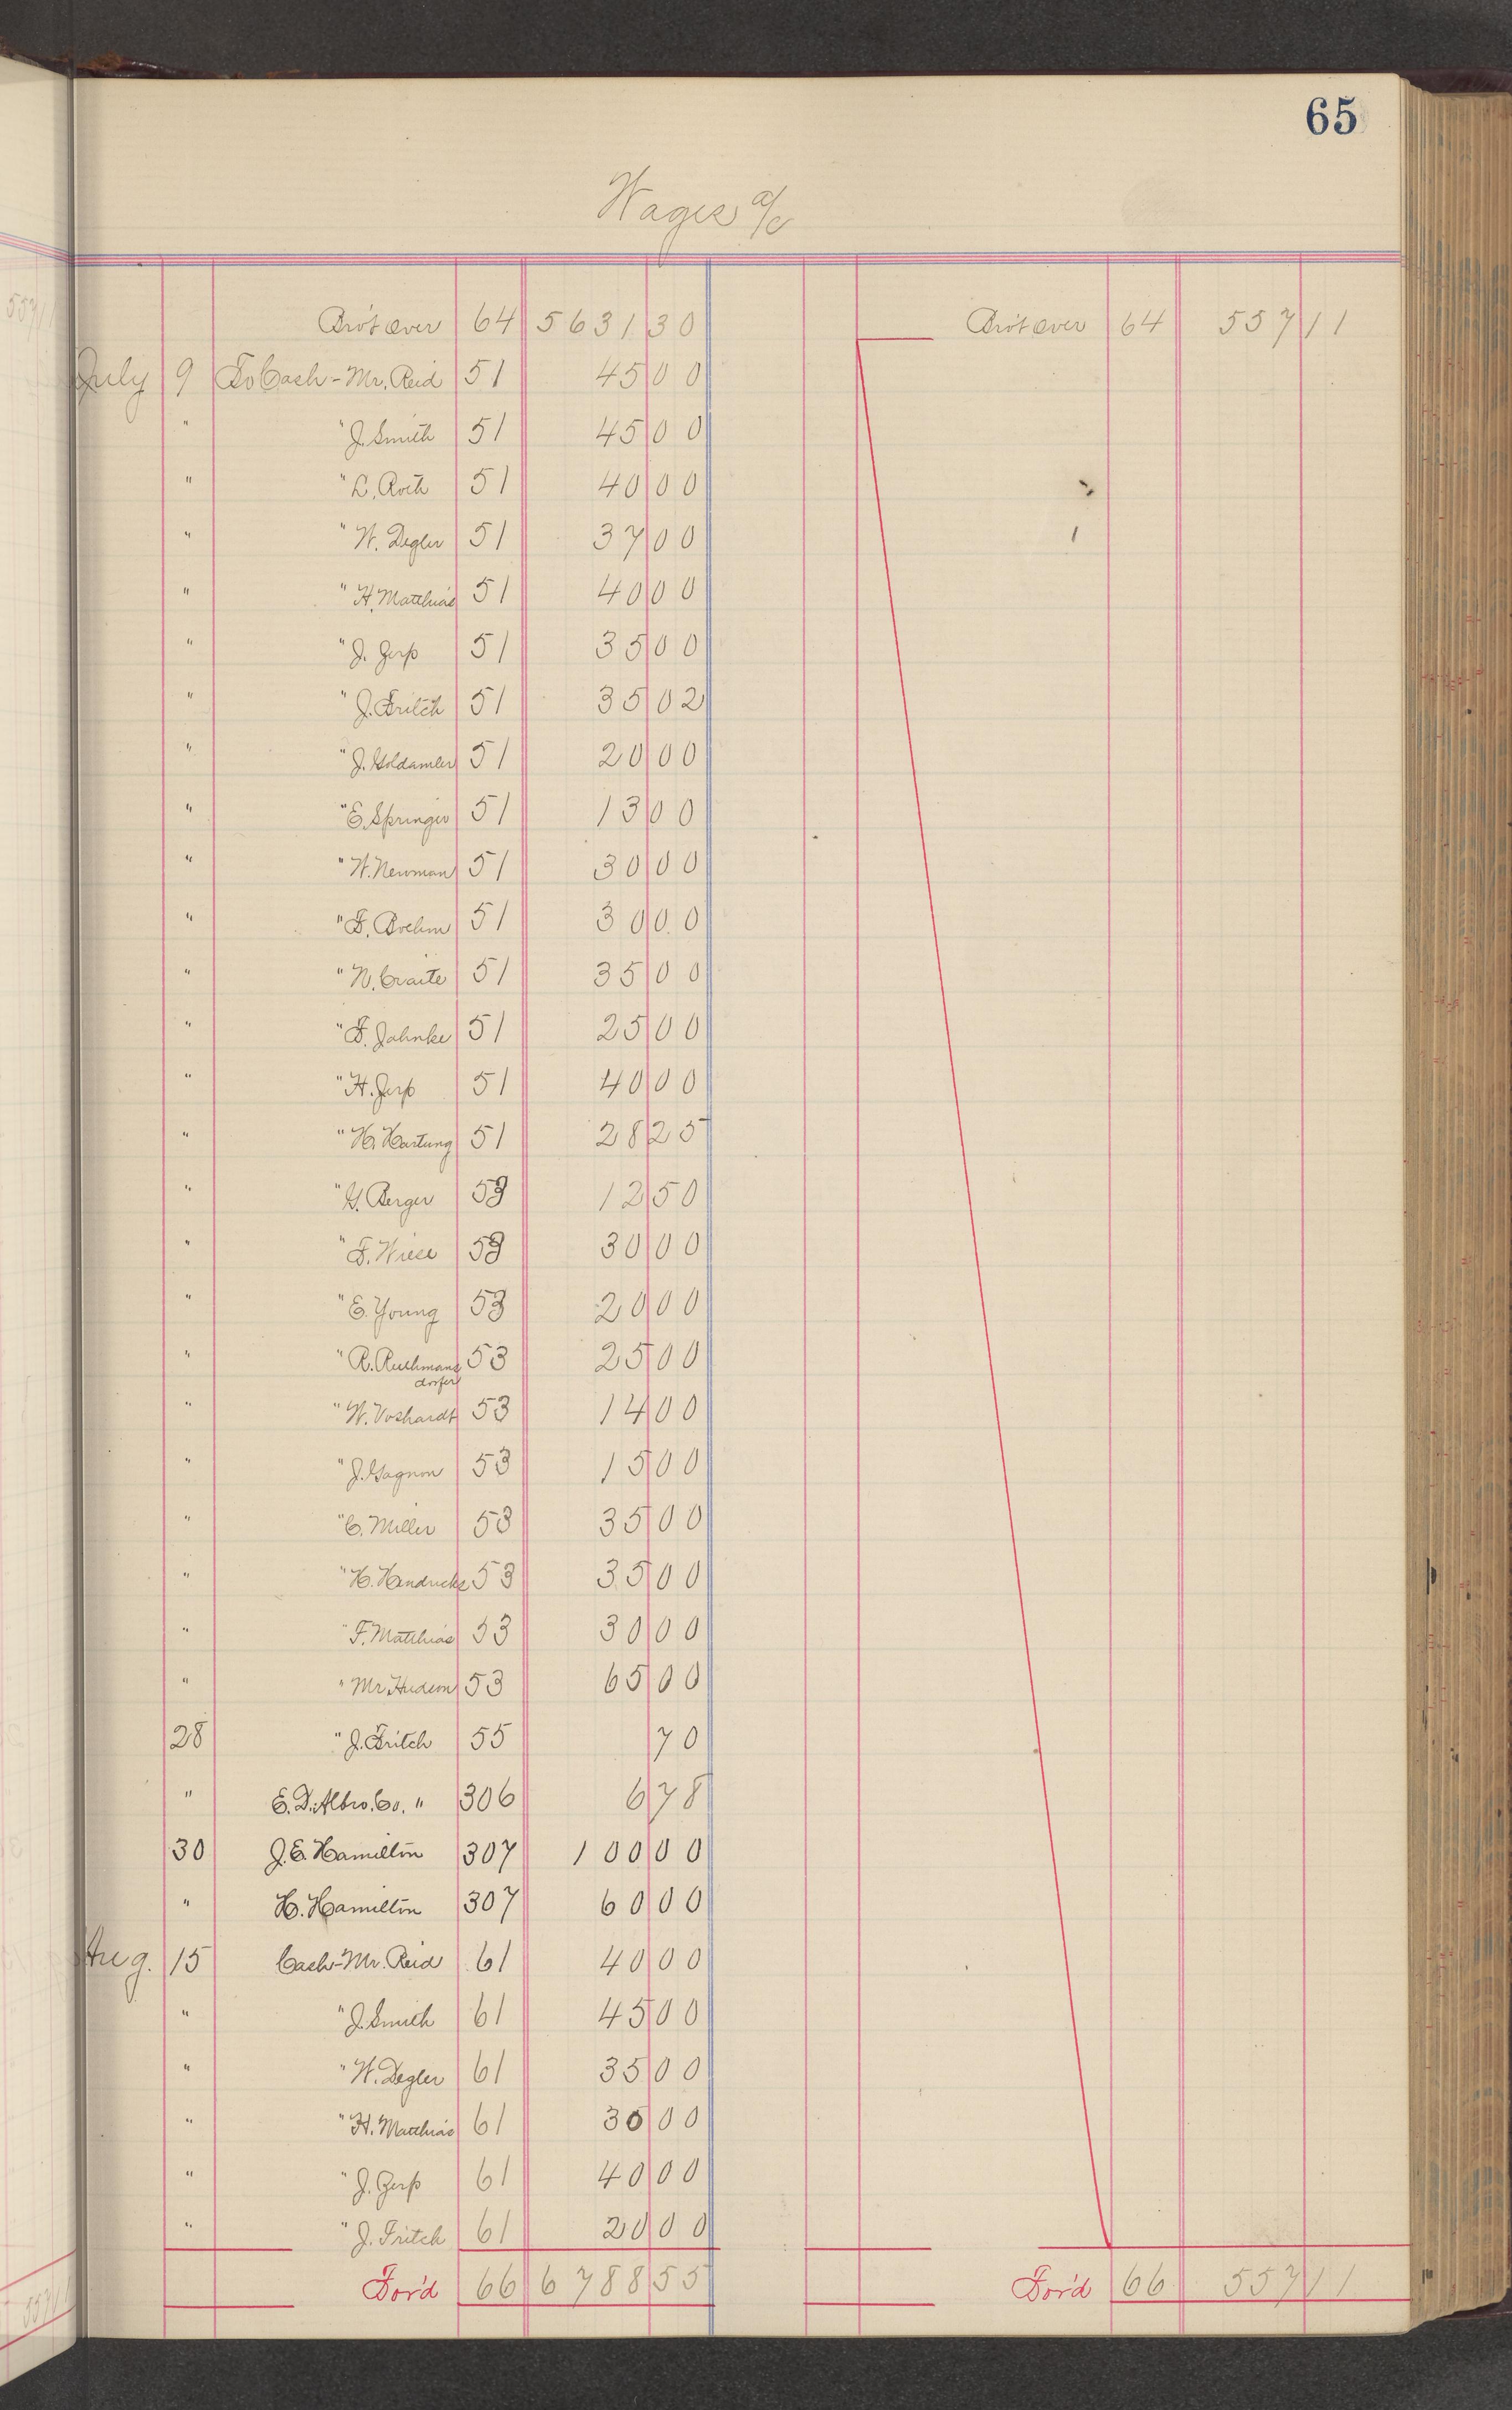 65
Wages a/c
Bro't over 64 5631 30 Bro't over 64 557 11
July 9 To Cash - Mr. Reid 51 45 00
" " J. Smith 51 45 00
" " L. Roth 51 40 00
" " W. Degler 51 37 00
" " H. Matthias 51 40 00
" " J. Gerp 51 35 00
" " J. Fritch 51 35 02
" " J. Goldamler 51 20 00
" " E. Springer 51 13 00
" " W. Newman 51 30 00
" " F. Boehm 51 30 00
" " N. Craite 51 35 00
" " F. Jahnke 51 25 00
" " H. Gerp 51 40 00
" " H. Hartung 51 28 25
" " G. Berger 53 12 50
" " F. Wiese 53 30 00
" " E. Young 53 20 00
" " R. Ruthmans 53 25 00
dorfer
" " W. Voshardt 53 14 00
" " J. Gagnon 53 15 00
" " C. Miller 53 35 00
" " H. Hendricks 53 35 00
" " F. Matthias 53 30 00
" " Mr. Hudson 53 65 00
28 " J. Fritch 55 70
" E. D. Albro. Co. " 306 6 78
30 J. E. Hamilton 307 100 00
" H. Hamilton 307 60 00
Aug. 15 Cash - Mr. Reid 61 40 00
" " J. Smith 61 45 00
" " W. Degler 61 35 00
" " H. Matthias 61 30 00
" " J. Gerp 61 40 00
" " J. Fritch 61 20 00
For'd 66 6788 55 For'd 66 557 11